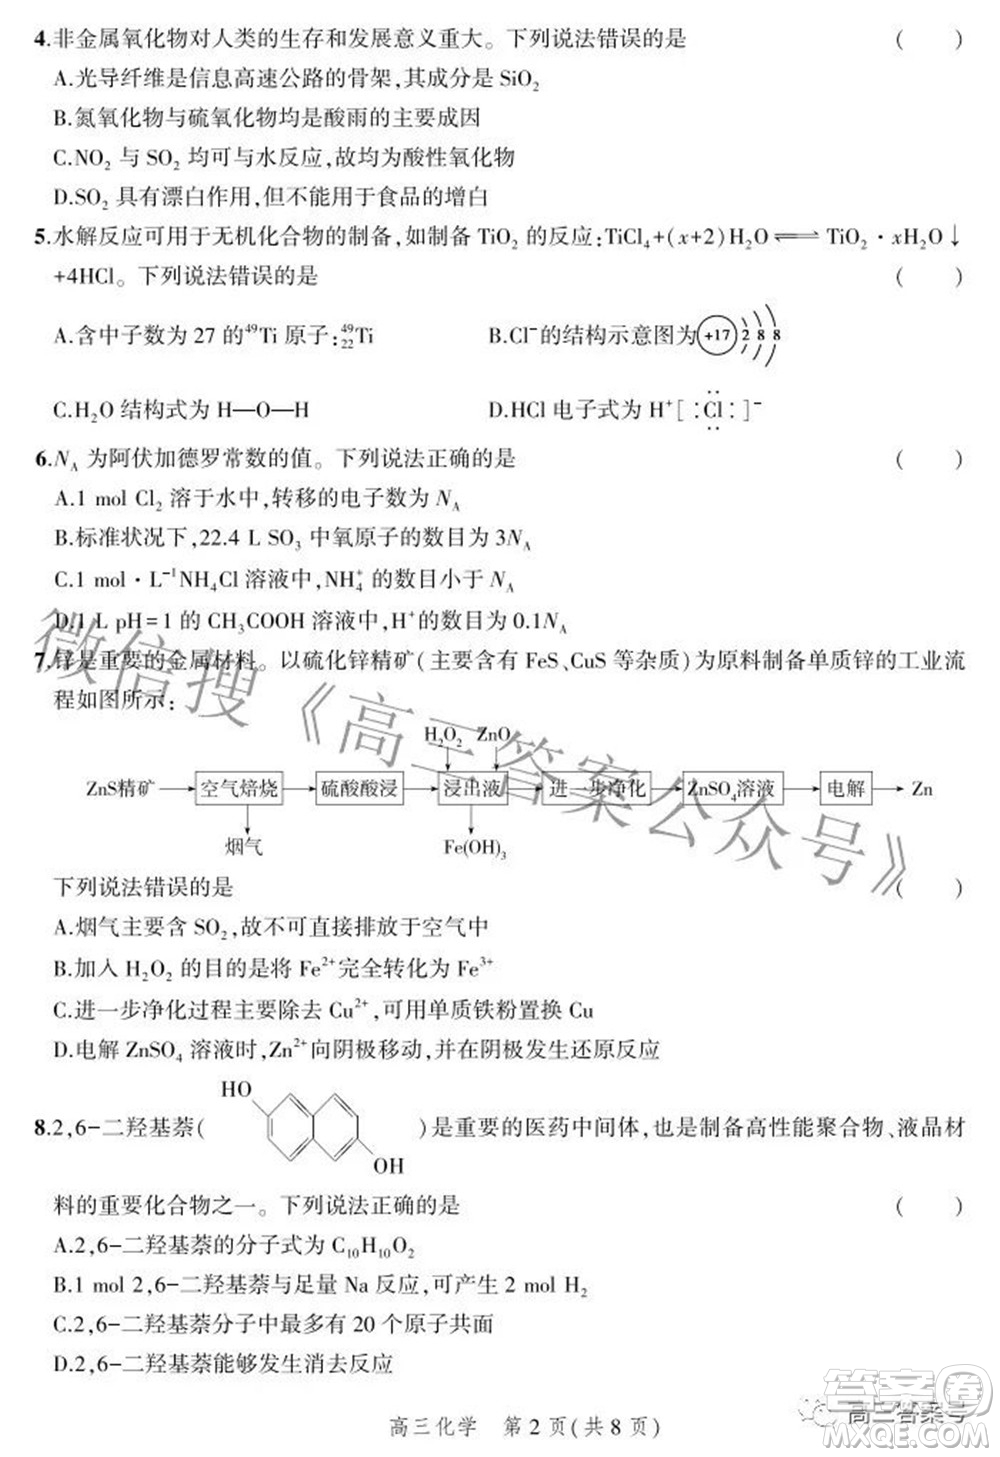 4.非金属氧化物对人类的生存和发展意义重大。下列说法错误的是 (　)
A.光导纤维是信息高速公路的骨架,其成分是SiO₂
B.氮氧化物与硫氧化物均是酸雨的主要成因
C.NO₂ 与 SO₂ 均可与水反应,故均为酸性氧化物
D.SO₂ 具有漂白作用,但不能用于食品的增白
5.水解反应可用于无机化合物的制备,如制备 TiO₂ 的反应:TiCl₄+(x+2)H₂O⇌TiO₂·xH₂O↓
+4HCl。下列说法错误的是 (　)
A.含中子数为 27 的⁴⁹Ti 原子:⁴⁹₂₂Ti
B.Cl⁻的结构示意图为 +17 2 8 8
C.H₂O 结构式为 H—O—H
D.HCl 电子式为 H⁺[:Cl:]⁻
6.N_A 为阿伏加德罗常数的值。下列说法正确的是 (　)
A.1 mol Cl₂ 溶于水中,转移的电子数为 N_A
B.标准状况下,22.4 L SO₃ 中氧原子的数目为 3N_A
C.1 mol·L⁻¹NH₄Cl 溶液中,NH₄⁺的数目小于 N_A
D.1 L pH=1 的 CH₃COOH 溶液中,H⁺的数目为 0.1N_A
7.锌是重要的金属材料。以硫化锌精矿(主要含有 FeS、CuS 等杂质)为原料制备单质锌的工业流
程如图所示:
H₂O₂ ZnO
ZnS精矿 空气焙烧 硫酸酸浸 浸出液 进一步净化 ZnSO₄溶液 电解 Zn
烟气 Fe(OH)₃
下列说法错误的是 (　)
A.烟气主要含 SO₂,故不可直接排放于空气中
B.加入 H₂O₂ 的目的是将 Fe²⁺完全转化为 Fe³⁺
C.进一步净化过程主要除去 Cu²⁺,可用单质铁粉置换 Cu
D.电解 ZnSO₄ 溶液时,Zn²⁺向阴极移动,并在阴极发生还原反应
8.2,6-二羟基萘( HO OH )是重要的医药中间体,也是制备高性能聚合物、液晶材
料的重要化合物之一。下列说法正确的是 (　)
A.2,6-二羟基萘的分子式为 C₁₀H₁₀O₂
B.1 mol 2,6-二羟基萘与足量 Na 反应,可产生 2 mol H₂
C.2,6-二羟基萘分子中最多有 20 个原子共面
D.2,6-二羟基萘能够发生消去反应
高三化学 第 2 页(共 8 页)
微信搜《高三答案公众号》
高三答案号
答案圈
MXQE.COM